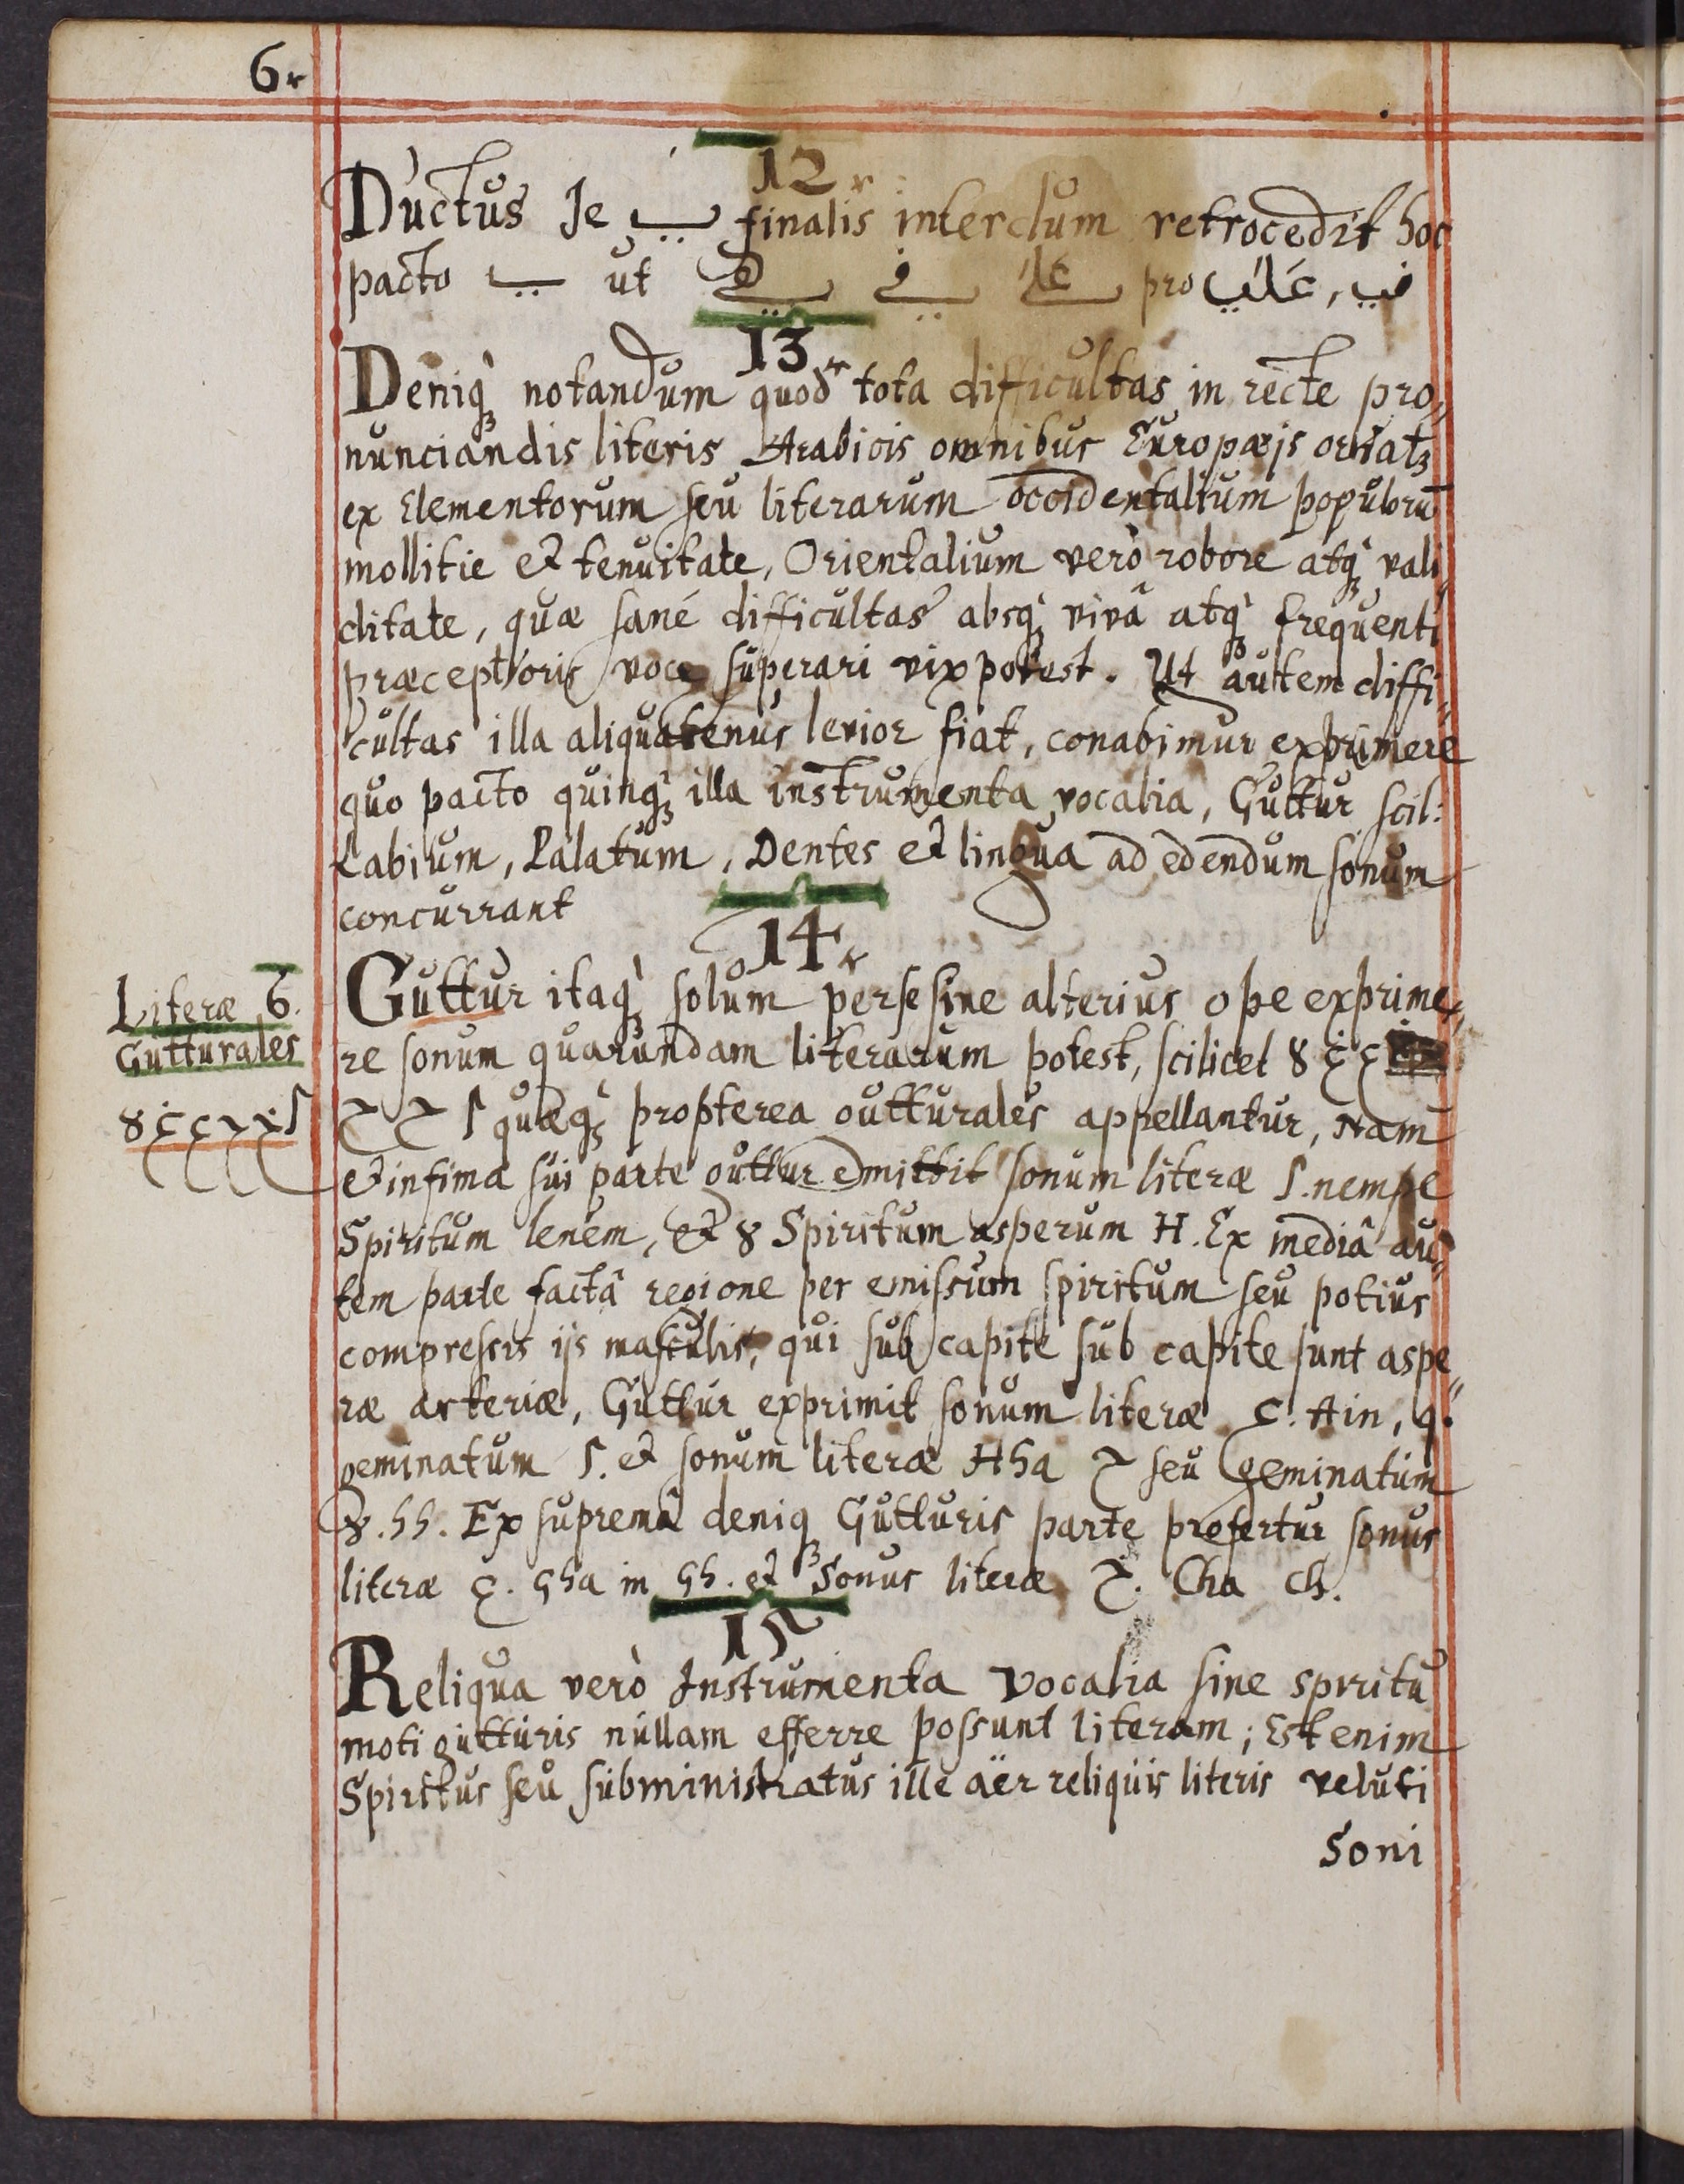 6.
12.
Ductus Je ي finalis interdum retrocedit hoc
pacto ے ut في علے pro علي , في
13.
Deniq; notandum quod tota difficultas in recte pro„
nunciandis literis Arabicis omnibus Europæis oriat;
ex Elementorum seu literarum occidentalium populorū
mollitie et tenuitate, Orientalium verò robore atq; vali„
ditate, quæ sané difficultas absq; vivâ atq; frequenti
præceptoris voce superari vix potest. Ut autem diffi„
cultas illa aliquatenus levior fiat, conabimur exprimere
quo pacto quinq; illa instrumenta vocalia, Guttur scil:
Labium, Palatum, Dentes et lingua ad edendum sonum
concurrant
14.
Guttur itaq; solum per se sine alterius ope exprime„
re sonum quarundam literarum potest, scilicet 8 غ ع
خ ح ا quæq; propterea gutturales appellantur, Nam
et infima sui parte guttur emittit sonum literæ ا. nempe
Spiritum lenem, et 8 Spiritum asperum H. Ex mediâ au„
tem parte factâ regione per emissum spiritum seu potius
compressis ijs masculis, qui sub capite sub capite sunt aspe„
ræ arteriæ, Guttur exprimit sonum literæ ع. Ain, q.
geminatum ا. et sonum literæ Hha ح seu geminatum
8. hh. Ex supremâ deniq; Gutturis parte profertur sonus
literæ غ. Gha in Gh. et Sonus literæ خ. Cha Ch.
15
Reliqua verò Instrumenta vocalia sine spiritu
moti gutturis nullam efferre possunt literam; Est enim
Spiritus seu subministratus ille aër reliquis literis veluti
Soni
Literæ 6.
Gutturales
8 غ ع ح خ ا